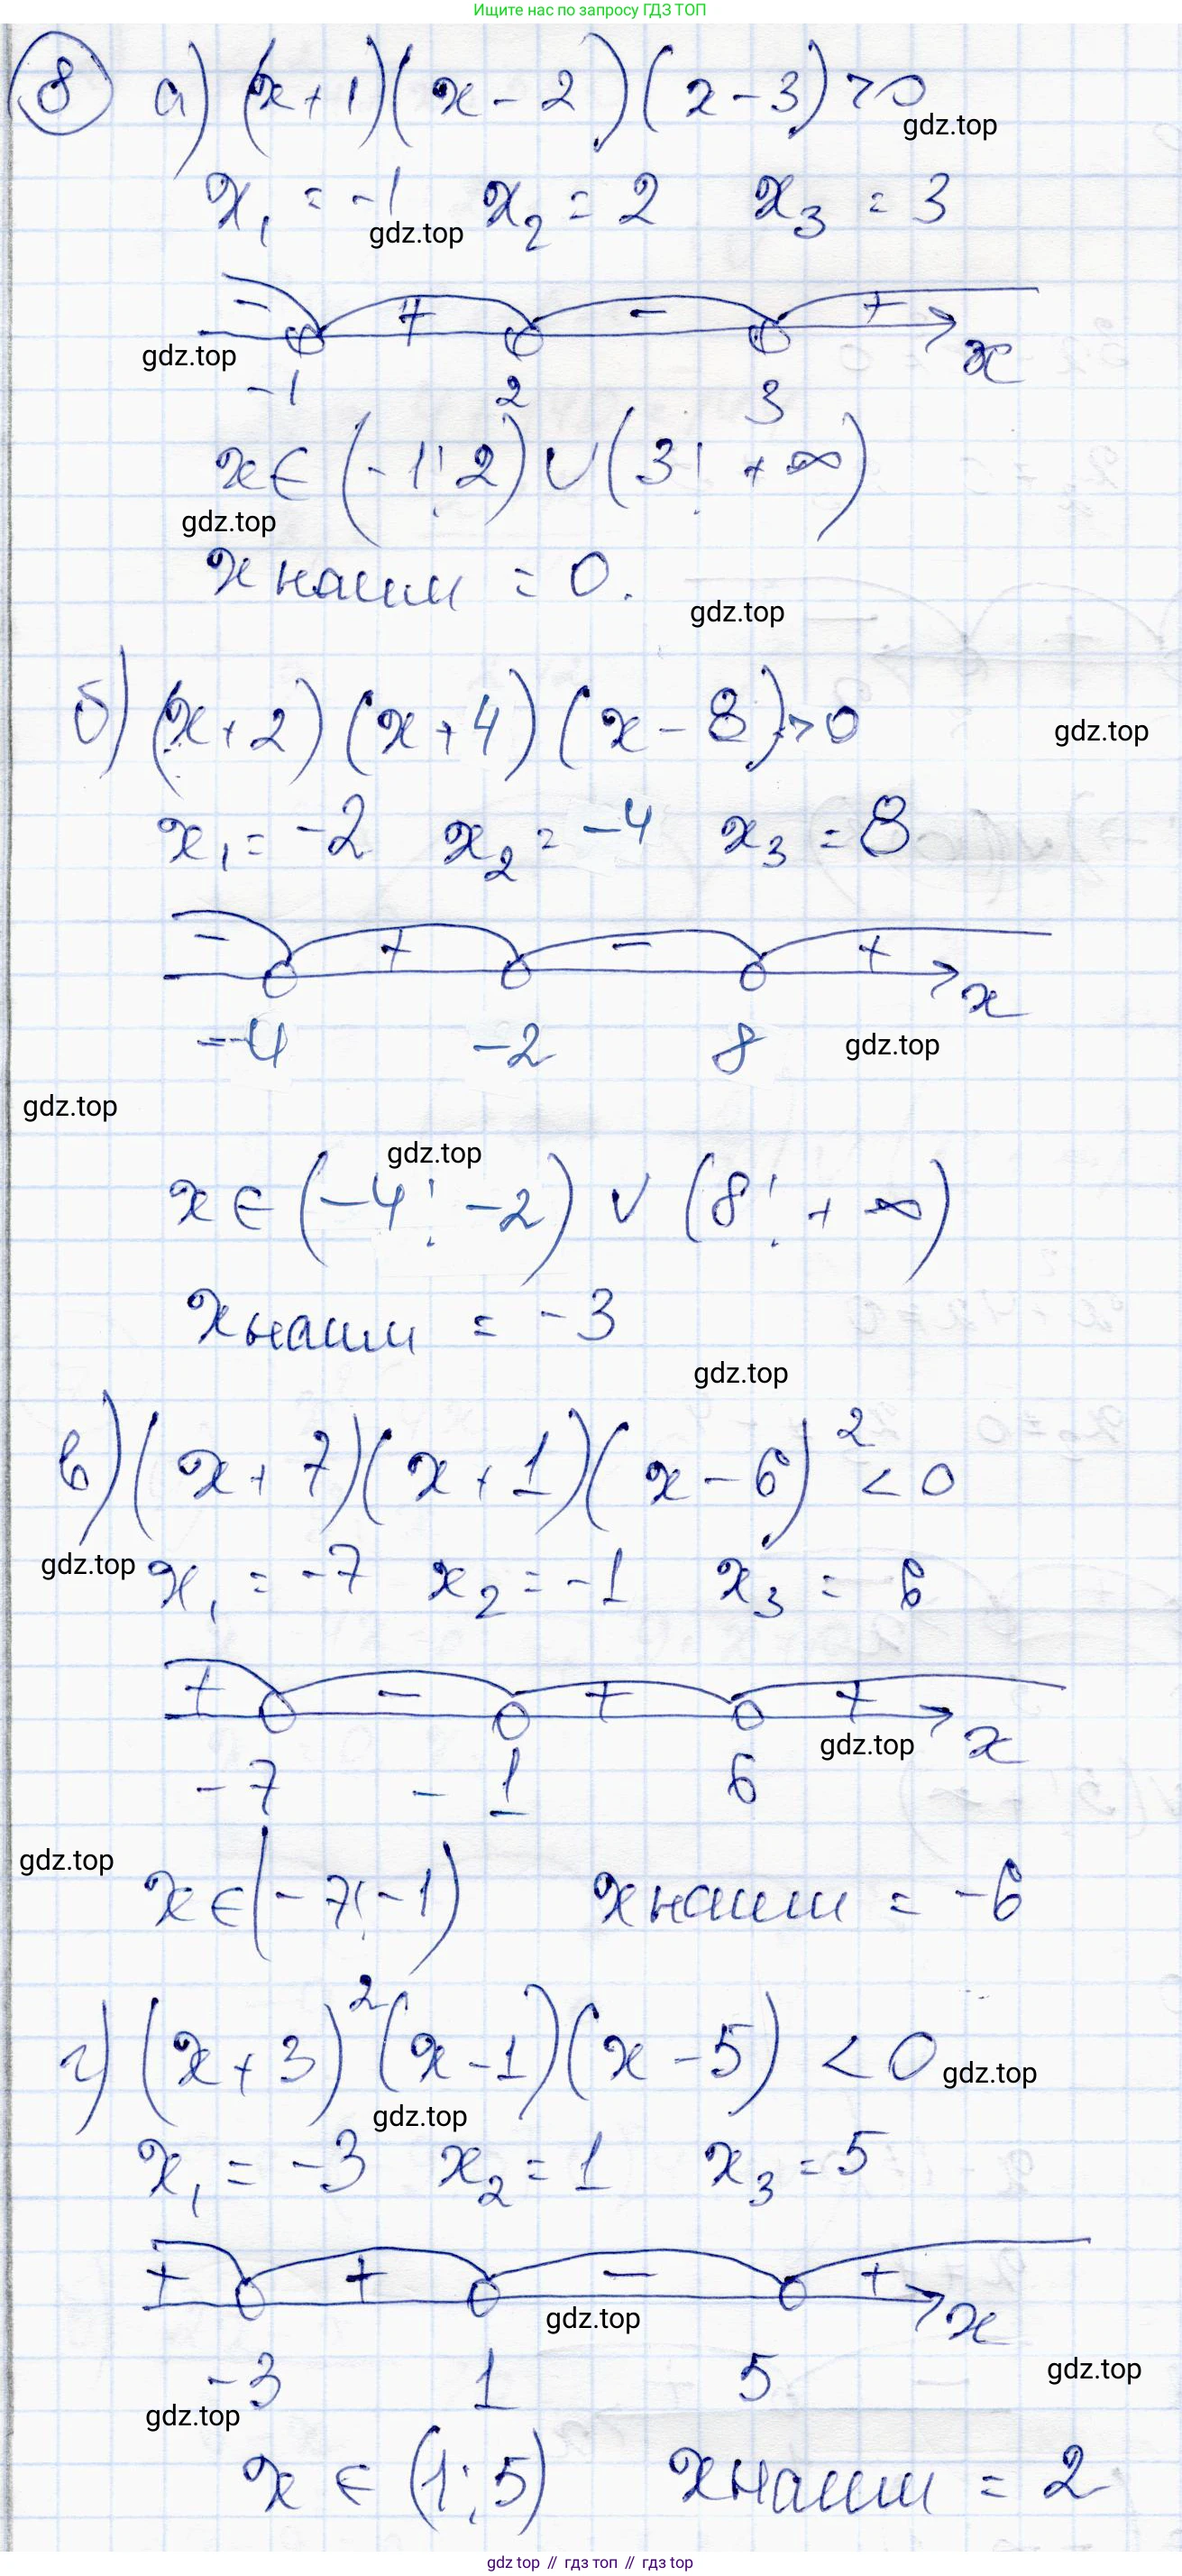 Ищите нас по запросу ГДЗ ТОП
8 а) (x+1)(x-2)(x-3)>0
gdz.top
x₁ = -1 x₂ = 2 x₃ = 3
gdz.top
- + - + x
gdz.top
-1 2 3
x∈ (-1; 2) ∪ (3; +∞)
gdz.top
x наим = 0.
gdz.top
б) (x+2)(x+4)(x-8)>0
gdz.top
x₁ = -2 x₂ = -4 x₃ = 8
- + - + x
-4 -2 8
gdz.top
gdz.top
gdz.top
x ∈ (-4; -2) ∪ (8; +∞)
x наим = -3
gdz.top
в) (x+7)(x+1)(x-6)² <0
gdz.top
x₁ = -7 x₂ = -1 x₃ = 6
+ - + + x
gdz.top
-7 -1 6
gdz.top
x∈(-7; -1) x наим = -6
г) (x+3)²(x-1)(x-5) < 0
gdz.top
gdz.top
x₁ = -3 x₂ = 1 x₃ = 5
+ + - + x
gdz.top
-3 1 5
gdz.top
gdz.top
x ∈ (1; 5) x наим = 2
gdz top // гдз топ // гдз top